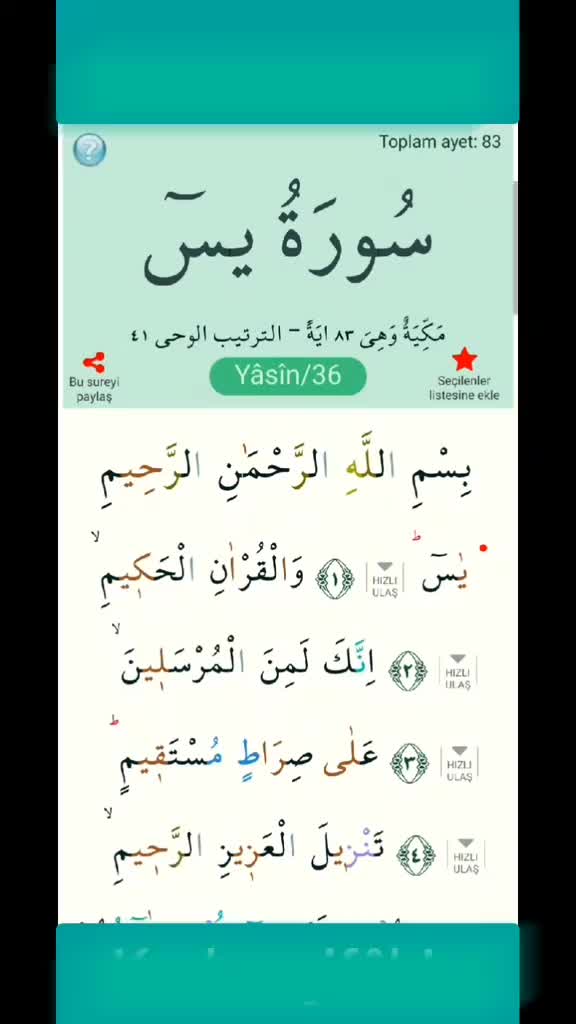 Toplam ayet: 83
سُورَةُ يسٓ
مَكِّيَةٌ وَهِىَ ٨٣ ايَةً – الترتيب الوحى ٤١
Bu sureyi
paylaş
Yâsîn/36
Seçilenler
listesine ekle
بِسْمِ اللَّهِ الرَّحْمٰنِ الرَّحِيمِ
يٰسٓ ۜ ﴿١﴾ HIZLI ULAŞ وَالْقُرْاٰنِ الْحَكٖيمِۙ
﴿٢﴾ HIZLI ULAŞ اِنَّكَ لَمِنَ الْمُرْسَلٖينَۙ
﴿٣﴾ HIZLI ULAŞ عَلٰى صِرَاطٍ مُسْتَقٖيمٍؕ
﴿٤﴾ HIZLI ULAŞ تَنْزٖيلَ الْعَزٖيزِ الرَّحٖيمِۙ